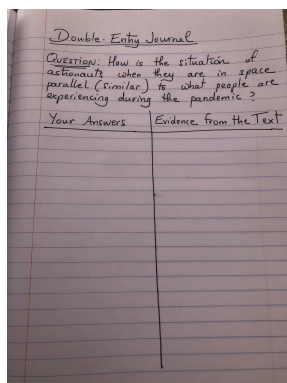 Double-Entry Journal
QUESTION: How is the situation of
astronauts when they are in space
parallel (similar) to what people are
experiencing during the pandemic?
Your Answers
Evidence from the Text